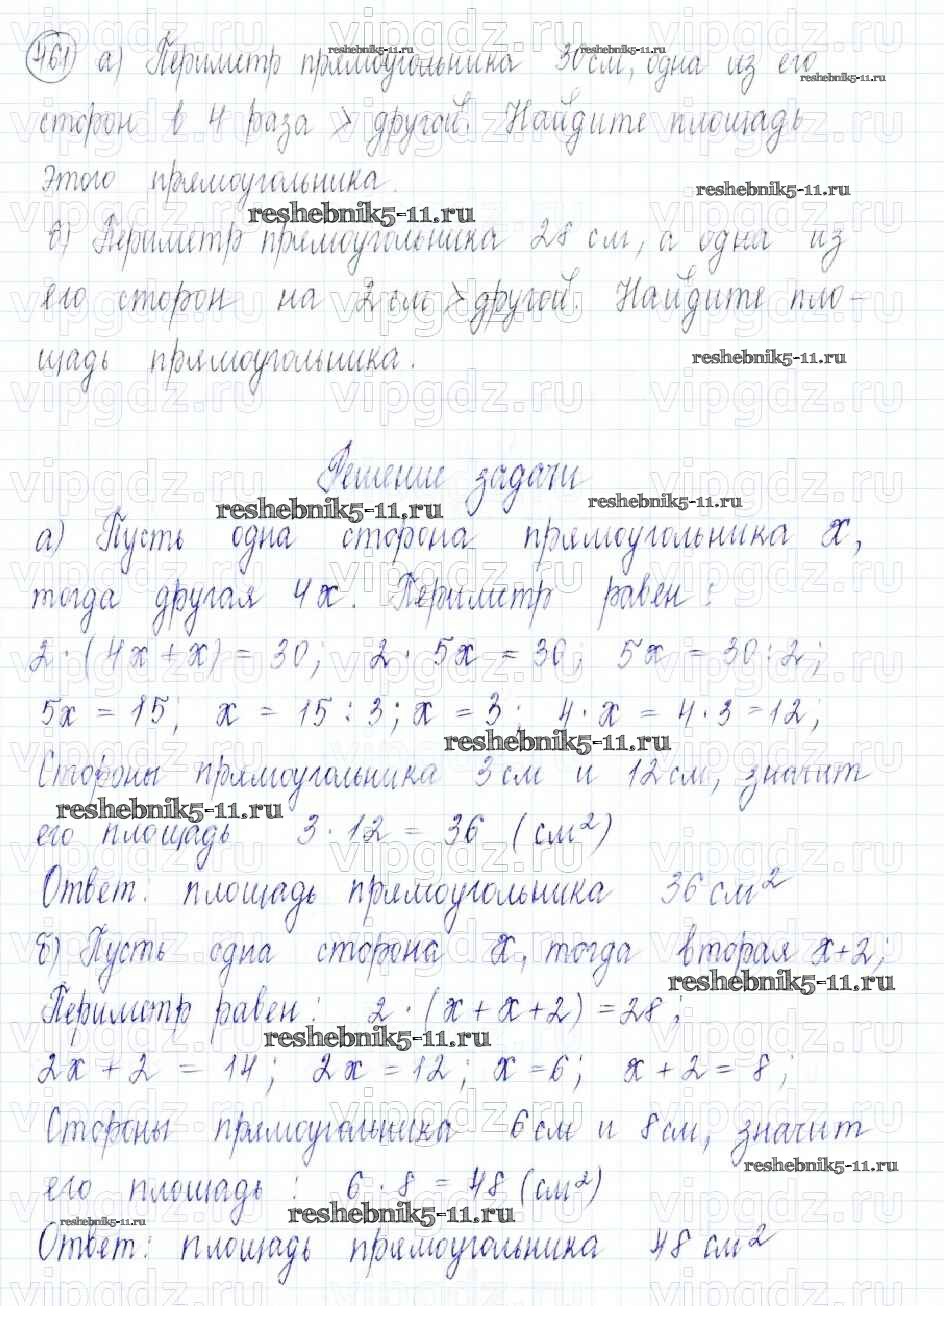 461 а) Периметр прямоугольника 30 см, одна из его
сторон в 4 раза > другой. Найдите площадь
этого прямоугольника.
в) Периметр прямоугольника 28 см, а одна из
его сторон на 2 см > другой. Найдите пло-
щадь прямоугольника.
Решение задачи
а) Пусть одна сторона прямоугольника x,
тогда другая 4x. Периметр равен:
2·(4x+x)=30; 2·5x=30; 5x=30:2;
5x=15; x=15:3; x=3; 4·x=4·3=12;
Стороны прямоугольника 3 см и 12 см, значит
его площадь 3·12=36 (см²)
Ответ: площадь прямоугольника 36 см²
б) Пусть одна сторона x, тогда вторая x+2;
Периметр равен: 2·(x+x+2)=28;
2x+2=14; 2x=12; x=6; x+2=8;
Стороны прямоугольника 6 см и 8 см, значит
его площадь: 6·8=48 (см²)
Ответ: площадь прямоугольника 48 см²
vipgdz.ru
reshebnik5-11.ru